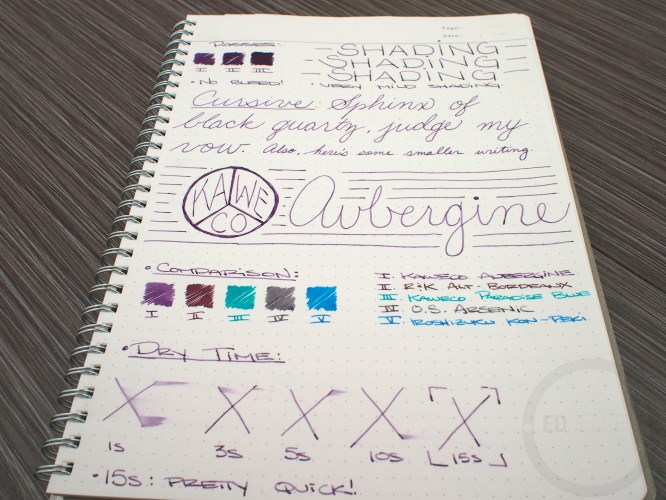 Page:
Date:
Passes:
I II III
• No bleed!
SHADING
SHADING
SHADING
• Very mild shading.
Cursive Sphinx of
black quartz, judge my
vow. Also, here's some smaller writing.
KAWE
CO
Aubergine
• Comparison:
I II III IV V
I: Kaweco Aubergine
II: R&K Alt-Bordeaux
III: Kaweco Paradise Blue
IV: O.S. Arsenic
V: Iroshizuku Kon-Peki
• Dry Time:
1s 3s 5s 10s 15s
• 15s: Pretty quick!